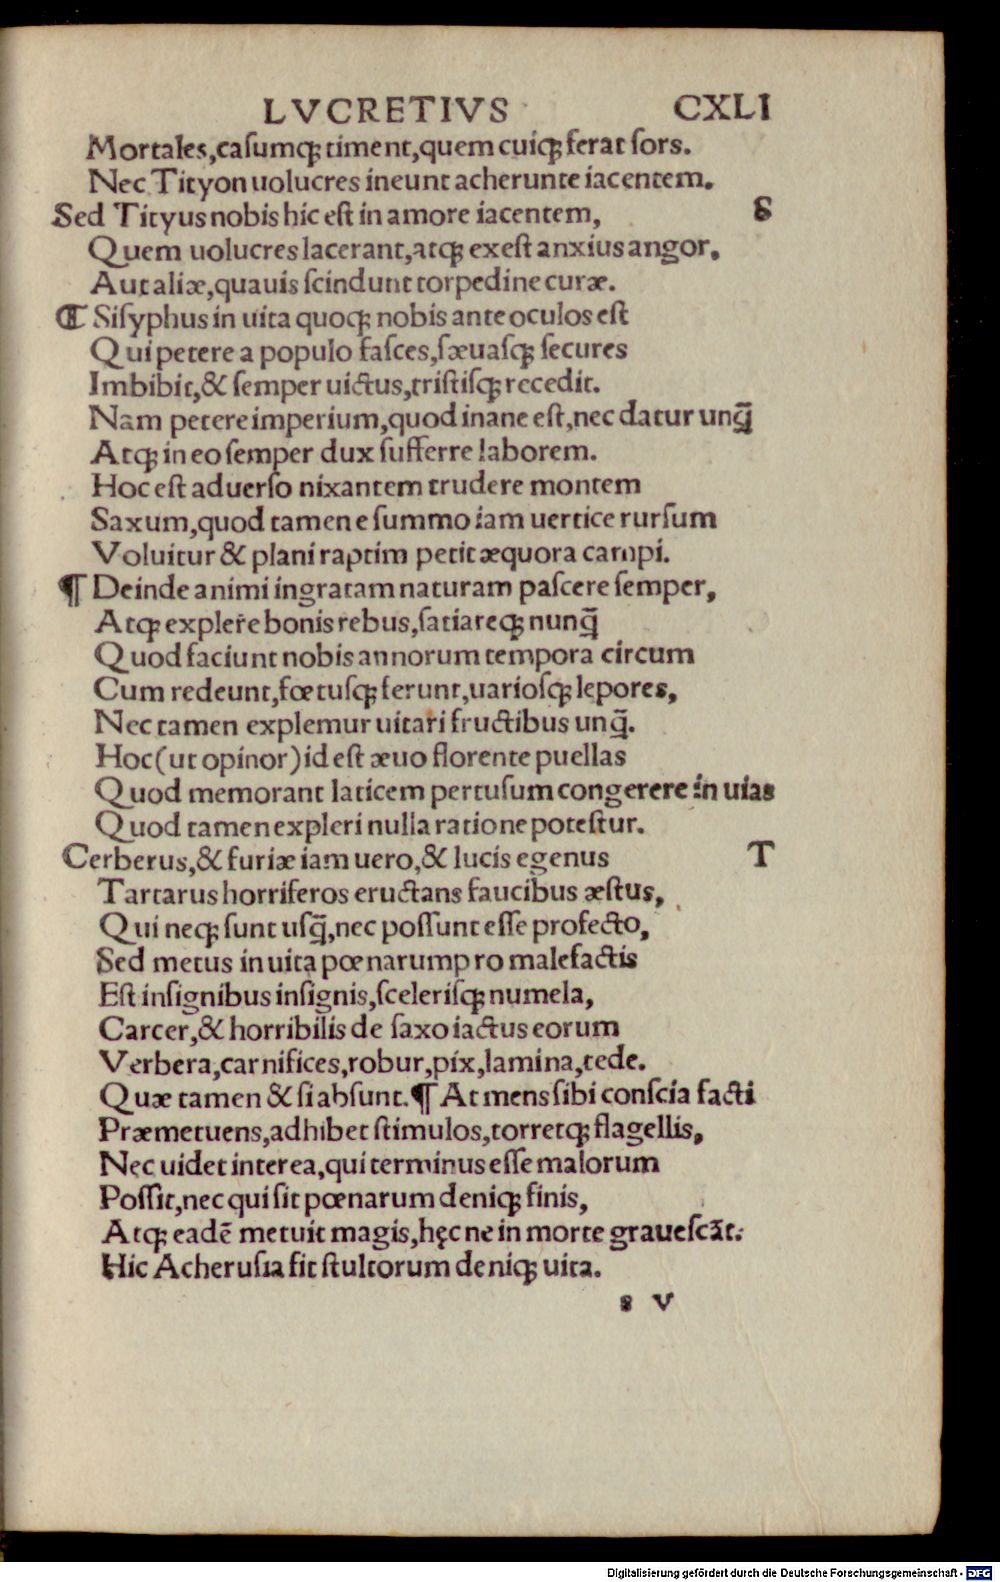 LVCRETIVS CXLI
Mortales,caſumq; timent,quem cuiq; ferat ſors.
Nec Tityon uolucres ineunt acherunte iacentem.
Sed Tityus nobis hic eſt in amore iacentem, S
Quem uolucres lacerant,atq; exeſt anxius angor.
Aut aliæ,quauis ſcindunt torpedine curæ.
¶ Siſyphus in uita quoq; nobis ante oculos eſt
Qui petere a populo faſces,ſæuaſq; ſecures
Imbibit,& ſemper uictus,triſtiſq; recedit.
Nam petere imperium,quod inane eſt,nec datur unq̃
Atq; in eo ſemper dux ſufferre laborem.
Hoc eſt aduerſo nixantem trudere montem
Saxum,quod tamen e ſummo iam uertice rurſum
Voluitur & plani raptim petit æquora campi.
¶ Deinde animi ingratam naturam paſcere ſemper,
Atq; explere bonis rebus,ſatiareq; nunq̃
Quod faciunt nobis annorum tempora circum
Cum redeunt,fœtuſq; ferunt,uarioſq; lepores,
Nec tamen explemur uitari fructibus unq̃.
Hoc(ut opinor)id eſt æuo florente puellas
Quod memorant laticem pertuſum congerere in uias
Quod tamen expleri nulla ratione poteſtur.
Cerberus,& furiæ iam uero,& lucis egenus T
Tartarus horriferos eructans faucibus æſtus,
Qui neq; ſunt uſq̃,nec poſſunt eſſe profecto,
Sed metus in uita pœnarump ro malefactis
Eſt inſignibus inſignis,ſceleriſq; numela,
Carcer,& horribilis de ſaxo iactus eorum
Verbera,carnifices,robur,pix,lamina,tede.
Quæ tamen & ſi abſunt.¶ At mens ſibi conſcia facti
Præmetuens,adhibet ſtimulos,torretq; flagellis,
Nec uidet interea,qui terminus eſſe malorum
Poſſit,nec qui ſit pœnarum deniq; finis,
Atq; eadē metuit magis,hęc ne in morte graueſcāt.
Hic Acheruſia fit ſtultorum deniq; uita.
s V
Digitalisierung gefördert durch die Deutsche Forschungsgemeinschaft - DFG